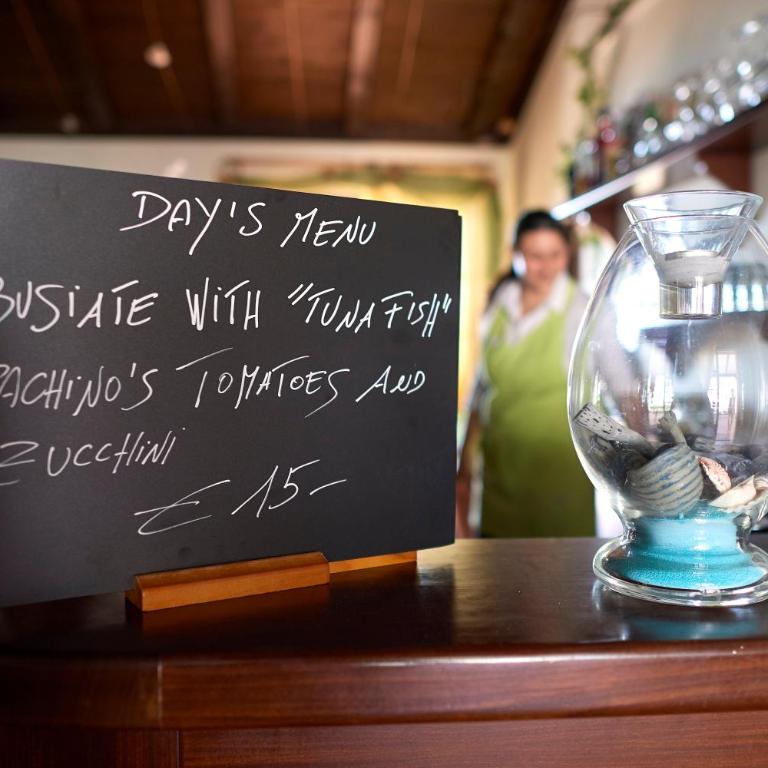 DAY'S MENU
BUSIATE WITH "TUNA FISH"
PACHINO'S TOMATOES AND
ZUCCHINI
€ 15-